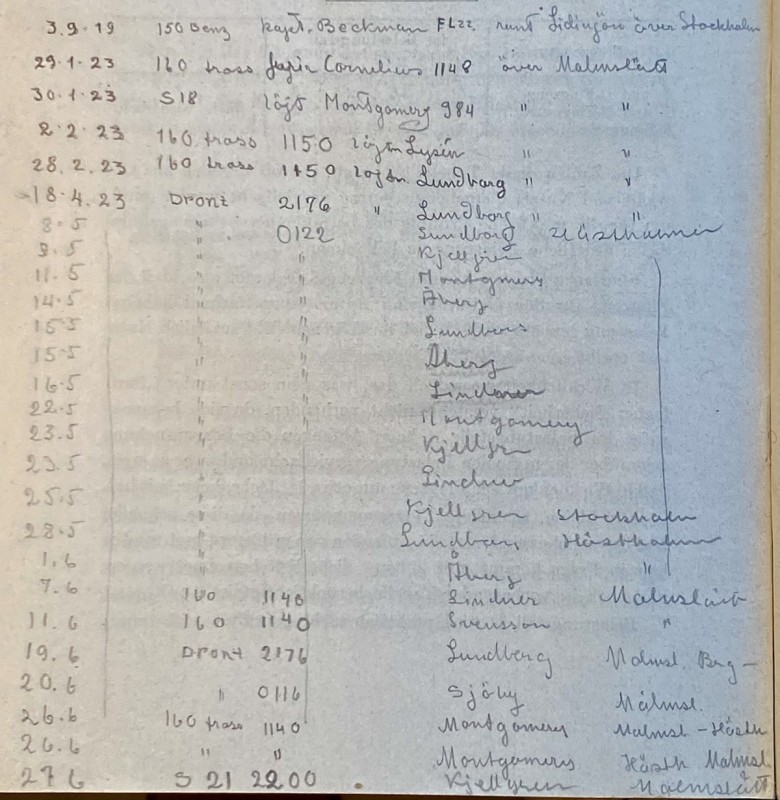 3.9.19 150 Benz kapt. Beckman FL22 runt Lidingön över Stockholm
29.1.23 160 trass Cornelius 1148 över Malmslätt
30.1.23 S18 löjt Montgomery 984 " "
2.2.23 160 trass 1150 löjtn Lysén " "
28.2.23 160 trass 1150 löjtn. Lundbarg " "
18.4.23 Dront 2176 " Lundborg " "
8.5 " 0122 Lundborg Hästholmen
9.5 " " Kjellgren
11.5 " " Montgomery
14.5 " " Åberg
15.5 " " Lundberg
15.5 " " Åberg
16.5 " " Lindner
22.5 " " Montgomery
23.5 " Kjellgren
23.5 " Lindner
25.5 " Kjellgren Stockholm
28.5 " Lundberg Hästholmen
1.6 " Åberg "
7.6 160 1140 Lindner Malmslätt
11.6 160 1140 Svensson "
19.6 Dront 2176 Lundberg Malmsl. Brg -
20.6 " 0116 Sjöby Malmsl.
26.6 160 trass 1140 Montgomery Malmsl - Hästh
26.6 " " Montgomery Hästh Malmsl.
27 6 S 21 2200 Kjellgren Malmslätt